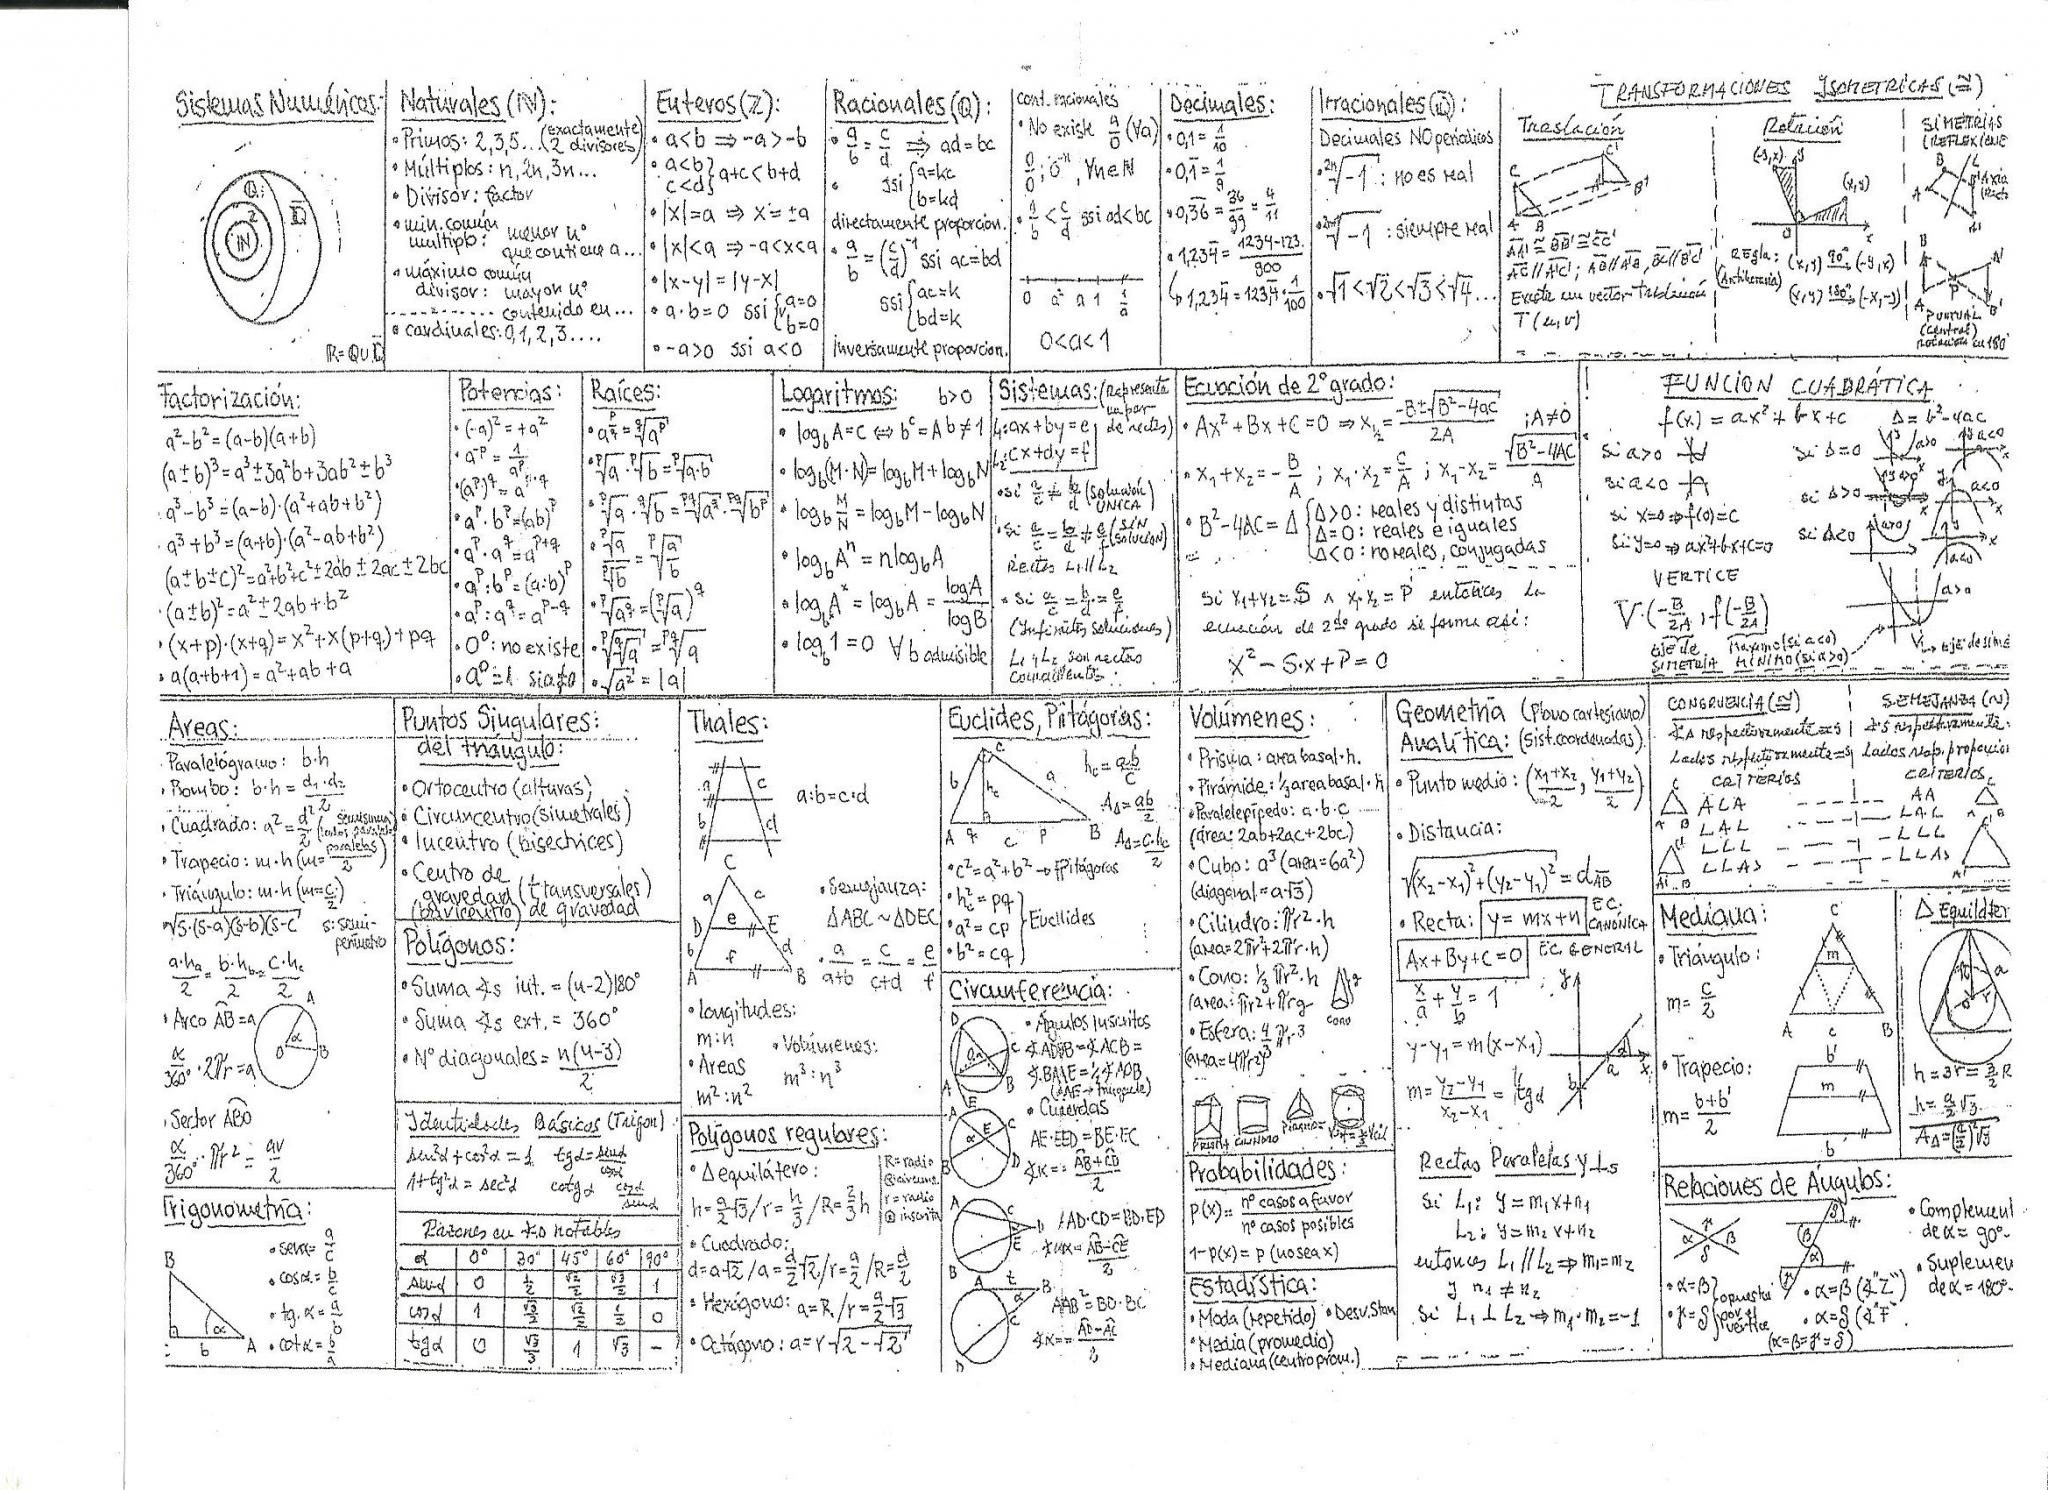 Sistemas Numéricos:
Q
Z
IN
ℝ=Q∪
Naturales (IN):
• Primos: 2,3,5... (exactamente 2 divisores)
• Múltiplos: n, 2n, 3n...
• Divisor: factor
• mín. común
multiplo: menor nº
que contiene a...
• máximo común
divisor: mayor nº
contenido en...
• cardinales: 0,1,2,3....
Enteros (Z):
• a<b ⇒ -a>-b
• a<b
c<d } a+c<b+d
• |x|=a ⇒ x=±a
• |x|<a ⇒ -a<x<a
• |x-y|=|y-x|
• a·b=0 ssi { a=0 v b=0
• -a>0 ssi a<0
Racionales (Q):
• a/b = c/d ⇒ ad=bc
• ssi { a=kc
b=kd
directamente proporción.
• a/b = (c/d)⁻¹ ssi ac=bd
ssi { ac=k
bd=k
Inversamente proporción.
cont. racionales
• No existe a/0 (∀a)
0/0; 0⁻ⁿ, ∀n∈N
• a/b < c/d ssi ad<bc
0 a² a 1 1/a
0<a<1
Decimales:
• 0,1 = 1/10
• 0,1̄ = 1/9
• 0,3̄6̄ = 36/99 = 4/11
• 1,234̄ = (1234-123)/900
Irracionales (Q̄):
Decimales NO periódicos
• ²ⁿ√-1 : no es real
: siempre real
• √1<√2<√3<√4...
TRANSFORMACIONES ISOMETRICAS (≅)
Traslación
C C'
A B A' B'
AA' ≅ BB' ≅ CC'
Existe un vector traslación
T(u,v)
Rotación
(-y,x) y
(x,y)
x
Regla: (x,y) 90° (-y,x)
(Antihoraria)
(x,y) 180° (-x,-y)
SIMETRIAS
PUNTUAL
(central)
Factorización:
a²-b²=(a-b)(a+b)
(a±b)³=a³±3a²b+3ab²±b³
• a³-b³=(a-b)·(a²+ab+b²)
• a³+b³=(a+b)·(a²-ab+b²)
(a±b±c)²=a²+b²+c²±2ab±2ac±2bc
• (a±b)²=a²±2ab+b²
• (x+p)·(x+q)=x²+x(p+q)+pq
• a(a+b+1)=a²+ab+a
Potencias:
• (-a)²=+a²
• a⁻ᵖ = 1/aᵖ
• (aᵖ)^q = a^(p·q)
• aᵖ·bᵖ=(ab)ᵖ
• aᵖ·a^q=a^(p+q)
• aᵖ:bᵖ=(a:b)ᵖ
• aᵖ:a^q=a^(p-q)
• 0⁰: no existe
• a⁰=1 si a≠0
Raíces:
• a^(p/q) = q√aᵖ
• p√a·p√b=p√a·b
• p√a·q√b=pq√a^q·pq√bᵖ
• p√a / p√b = p√(a/b)
• p√a^q=(p√a)^q
• p√q√a=pq√a
• √a²=|a|
Logaritmos: b>0
• log_b A=C ⇔ b^c=A b≠1
• log_b(M·N)=log_b M+log_b N
• log_b M/N=log_b M-log_b N
• log_b Aⁿ=n log_b A
• log_b A*=log_b A = logA/logB
• log_b 1=0 ∀b admisible
Sistemas: (Representa un par de rectas)
L₁: ax+by=e
L₂: cx+dy=f
• si a/c ≠ b/d (solución UNICA)
• si a/c = b/d ≠ e/f (SIN SOLUCION)
Rectas L₁ // L₂
• si a/c = b/d = e/f
(Infinitas soluciones)
L₁ y L₂ son rectas
Ecuación de 2º grado:
• Ax²+Bx+C=0 ⇒ x₁,₂ = (-B±√B²-4AC)/2A ; A≠0
• x₁+x₂=-B/A ; x₁·x₂=C/A ; x₁-x₂=√B²-4AC/A
• B²-4AC=Δ { Δ>0: reales y distintas
Δ=0: reales e iguales
Δ<0: no reales, conjugadas
si x₁+x₂=S ∧ x₁·x₂=P entonces la
ecuación de 2do grado se forma así:
x²-S·x+P=0
FUNCION CUADRÁTICA
f(x)=ax²+bx+c Δ=b²-4ac
si a>0
si a<0
si x=0⇒f(0)=c
si y=0⇒ax²+bx+c=0
si Δ=0 a>0 a<0
si Δ>0 a>0 a<0
si Δ<0 a>0 a<0
VERTICE
V·(-B/2A, f(-B/2A))
eje de SIMETRIA
Maximo (si a<0)
MÍNIMO (si a>0)
a>0
V
Areas:
• Paralelógramo: b·h
• Rombo: b·h=d₁·d₂/2
• Cuadrado: a²=d²/2
• Trapecio: m·h (m= semisuma lados paralelas /2)
• Triángulo: m·h (m=c/2)
• √s·(s-a)(s-b)(s-c s: semi-perímetro
a·ha/2 = b·hb/2 = c·hc/2
• Arco AB=a
α/360°·2πr=a
A O α B
• Sector ABO
α/360°·πr²=
Trigonometría:
B a b A α
• senα=a/c
• cosα=b/c
• tg.α=a/b
• cotα=b/a
Puntos Singulares:
del triángulo:
• Ortocentro (alturas)
• Circuncentro (simetrales)
• Incentro (bisectrices)
• Centro de
gravedad (transversales)
(baricentro) de gravedad
Polígonos:
• Suma ∢s int.=(n-2)180°
• Suma ∢s ext.=360°
• Nº diagonales=n(n-3)/2
Identidades Básicas (Trigon)
sen²α+cos²α=1 tgα=senα/cosα
1+tg²α=sec²α cotgα cosα/senα
Razones en ∢s notables
α 0° 30° 45° 60° 90°
senα 0 1/2 √2/2 √3/2 1
cosα 1 √3/2 √2/2 1/2 0
tgα 0 √3/3 1 √3 -
Thales:
a c
b d
a:b=c:d
C
a c
D e E
b f d
A B
• Semejanza:
ΔABC~ΔDEC
• a/(a+b) = c/(c+d) = e/f
• longitudes:
m:n
• Areas
m²:n²
• Volúmenes:
m³:n³
Polígonos regulares:
• Δequilátero:
h=a/2√3 / r=h/3 / R=2/3h
R=radio
r=radio
• Cuadrado:
d=a√2 / a=d/2√2 / r=a/2 / R=d/2
• Hexágono: a=R / r=a/2√3
• Octágono: a=r√2-√2
Euclides, Pitágoras:
C
b hc a
A q c p B
hc=a·b/c
AΔ=ab/2
AΔ=c·hc/2
• c²=a²+b² → Pitágoras
• hc²=pq
• a²=cp
• b²=cq
Euclides
Circunferencia:
• Ángulos inscritos
∢ADB=∢ACB=
∢BAE=½∢AOB
• Cuerdas
AE·ED=BE·EC
∢x= (AB+CD)/2
AD·CD=BD·ED
∢x= (AB-CE)/2
AB²=BD·BC
∢x= (AD-AC)/2
Volúmenes:
• Prisma: area basal·h.
• Pirámide: ⅓ area basal·h
• Paralelepípedo: a·b·c
(área: 2ab+2ac+2bc)
• Cubo: a³ (area=6a²)
(diagonal=a√3)
• Cilindro: πr²·h
(area=2πr²+2πr·h)
• Cono: ⅓πr²·h
(area: πr²+πrg
CONO
• Esfera: 4/3 πr³
(area=4πr²)
PRISMA CILINDRO PIRÁMIDE
Probabilidades:
P(x)= nº casos a favor / nº casos posibles
1-p(x)=p(no sea x)
Estadística:
• Moda (repetido) • Desv. Stan
• Media (promedio)
• Mediana (centro prom.)
Geometría (Plano cartesiano)
Analítica: (Sist. coordenadas)
• Punto medio: ((x₁+x₂)/2, (y₁+y₂)/2)
• Distancia:
√(x₂-x₁)²+(y₂-y₁)²=dAB
• Recta: y=mx+n EC. CANÓNICA
Ax+By+C=0 EC. GENERAL
x/a + y/b = 1
y-y₁=m(x-x₁)
m=(y₂-y₁)/(x₂-x₁)=tgα
y α a x b
Rectas Paralelas y ⊥s
Si L₁: y=m₁x+n₁
L₂: y=m₂x+n₂
entonces L₁//L₂⇒m₁=m₂
y n₁≠n₂
Si L₁⊥L₂⇒m₁·m₂=-1
CONGRUENCIA (≅)
∢s respectivamente =s
Lados respectivamente =s
CRITERIOS
ALA
LAL
LLL
LLA>
SEMEJANZA (~)
∢s respectivamente
Lados resp. proporcio
CRITERIOS
AA
LAL
LLL
LLA>
Mediana:
• Triángulo:
m=c/2
C m A c B
• Trapecio:
m=(b+b')/2
b' m b
Δ Equiláter
h=3r=3/2R
h=a/2√3
AΔ=(a/2)²√3
Relaciones de Ángulos:
• α=β
• γ=δ
opuestos por el vértice
• α=β (∢"Z")
• α=δ (∢"F"
(α=β=γ=δ)
• Complement
de α=90°-
• Suplemen
de α=180°-